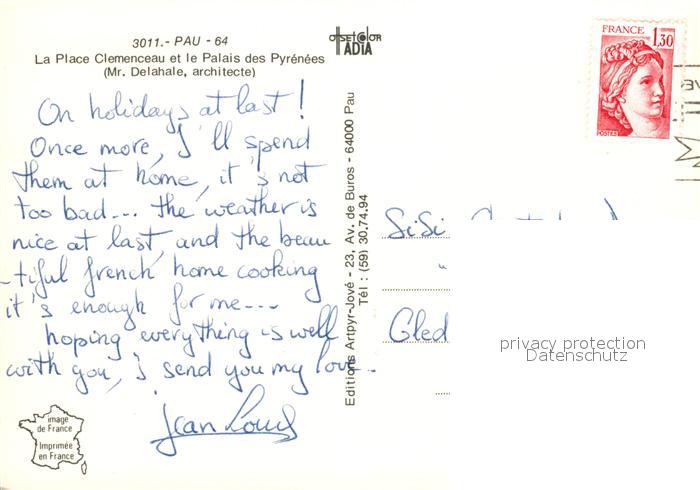 3011.- PAU - 64
La Place Clemenceau et le Palais des Pyrénées
(Mr. Delahale, architecte)
OFFSET COLOR
TADIA
On holidays at last!
Once more, I'll spend
them at home, it's not
too bad... the weather is
nice at last, and the beau
-tiful french home cooking
it's enough for me...
hoping everything is well
with you, I send you my love.
Jean Louis
image
de France
Imprimée
en France
Editions Artpyr-Jové - 23, Av. de Buros - 64000 Pau
Tél : (59) 30.74.94
FRANCE 1,30
POSTES
SiSi
Gled
privacy protection
Datenschutz